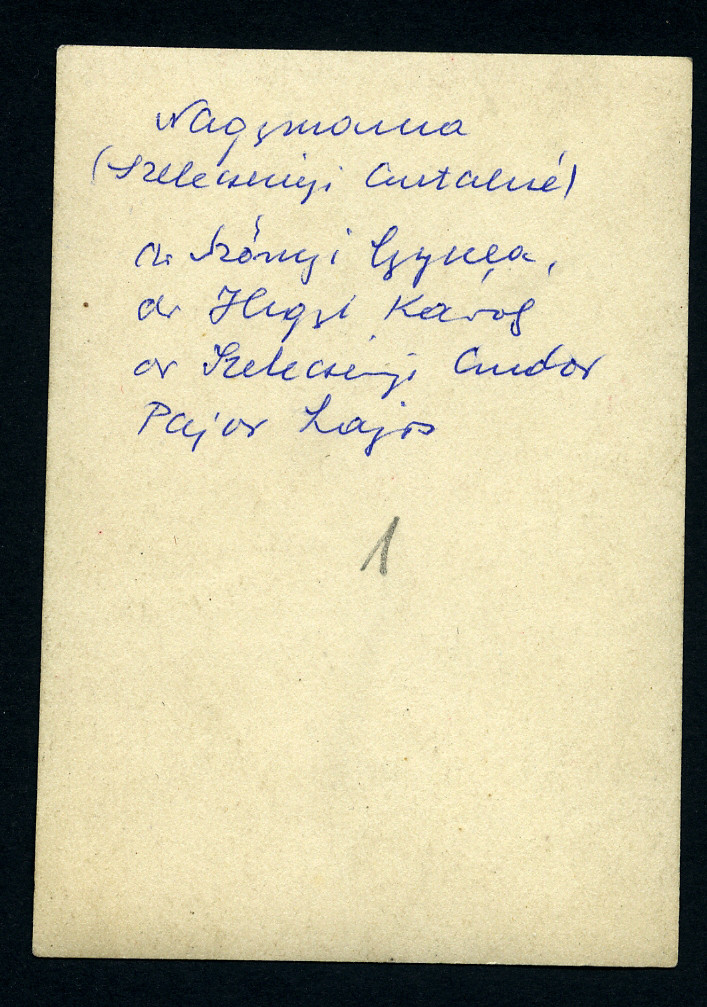 Nagymama
(Szelecsényi Antalné)
dr Szőnyi Gyula,
dr Károly
dr Szelecsényi Andor
Pajor Lajos
1